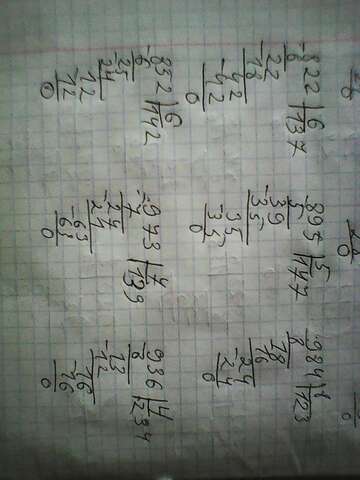 -822|6 -885|5 -984|8
6 |137 5 |177 8 |123
-22 -38 -18
18 35 16
-42 -35 -24
42 35 24
0 0 0
-852|6 -973|7 -936|4
6 |142 7 |139 8 |234
-25 -27 -13
24 21 12
-12 -63 -16
12 63 16
0 0 0